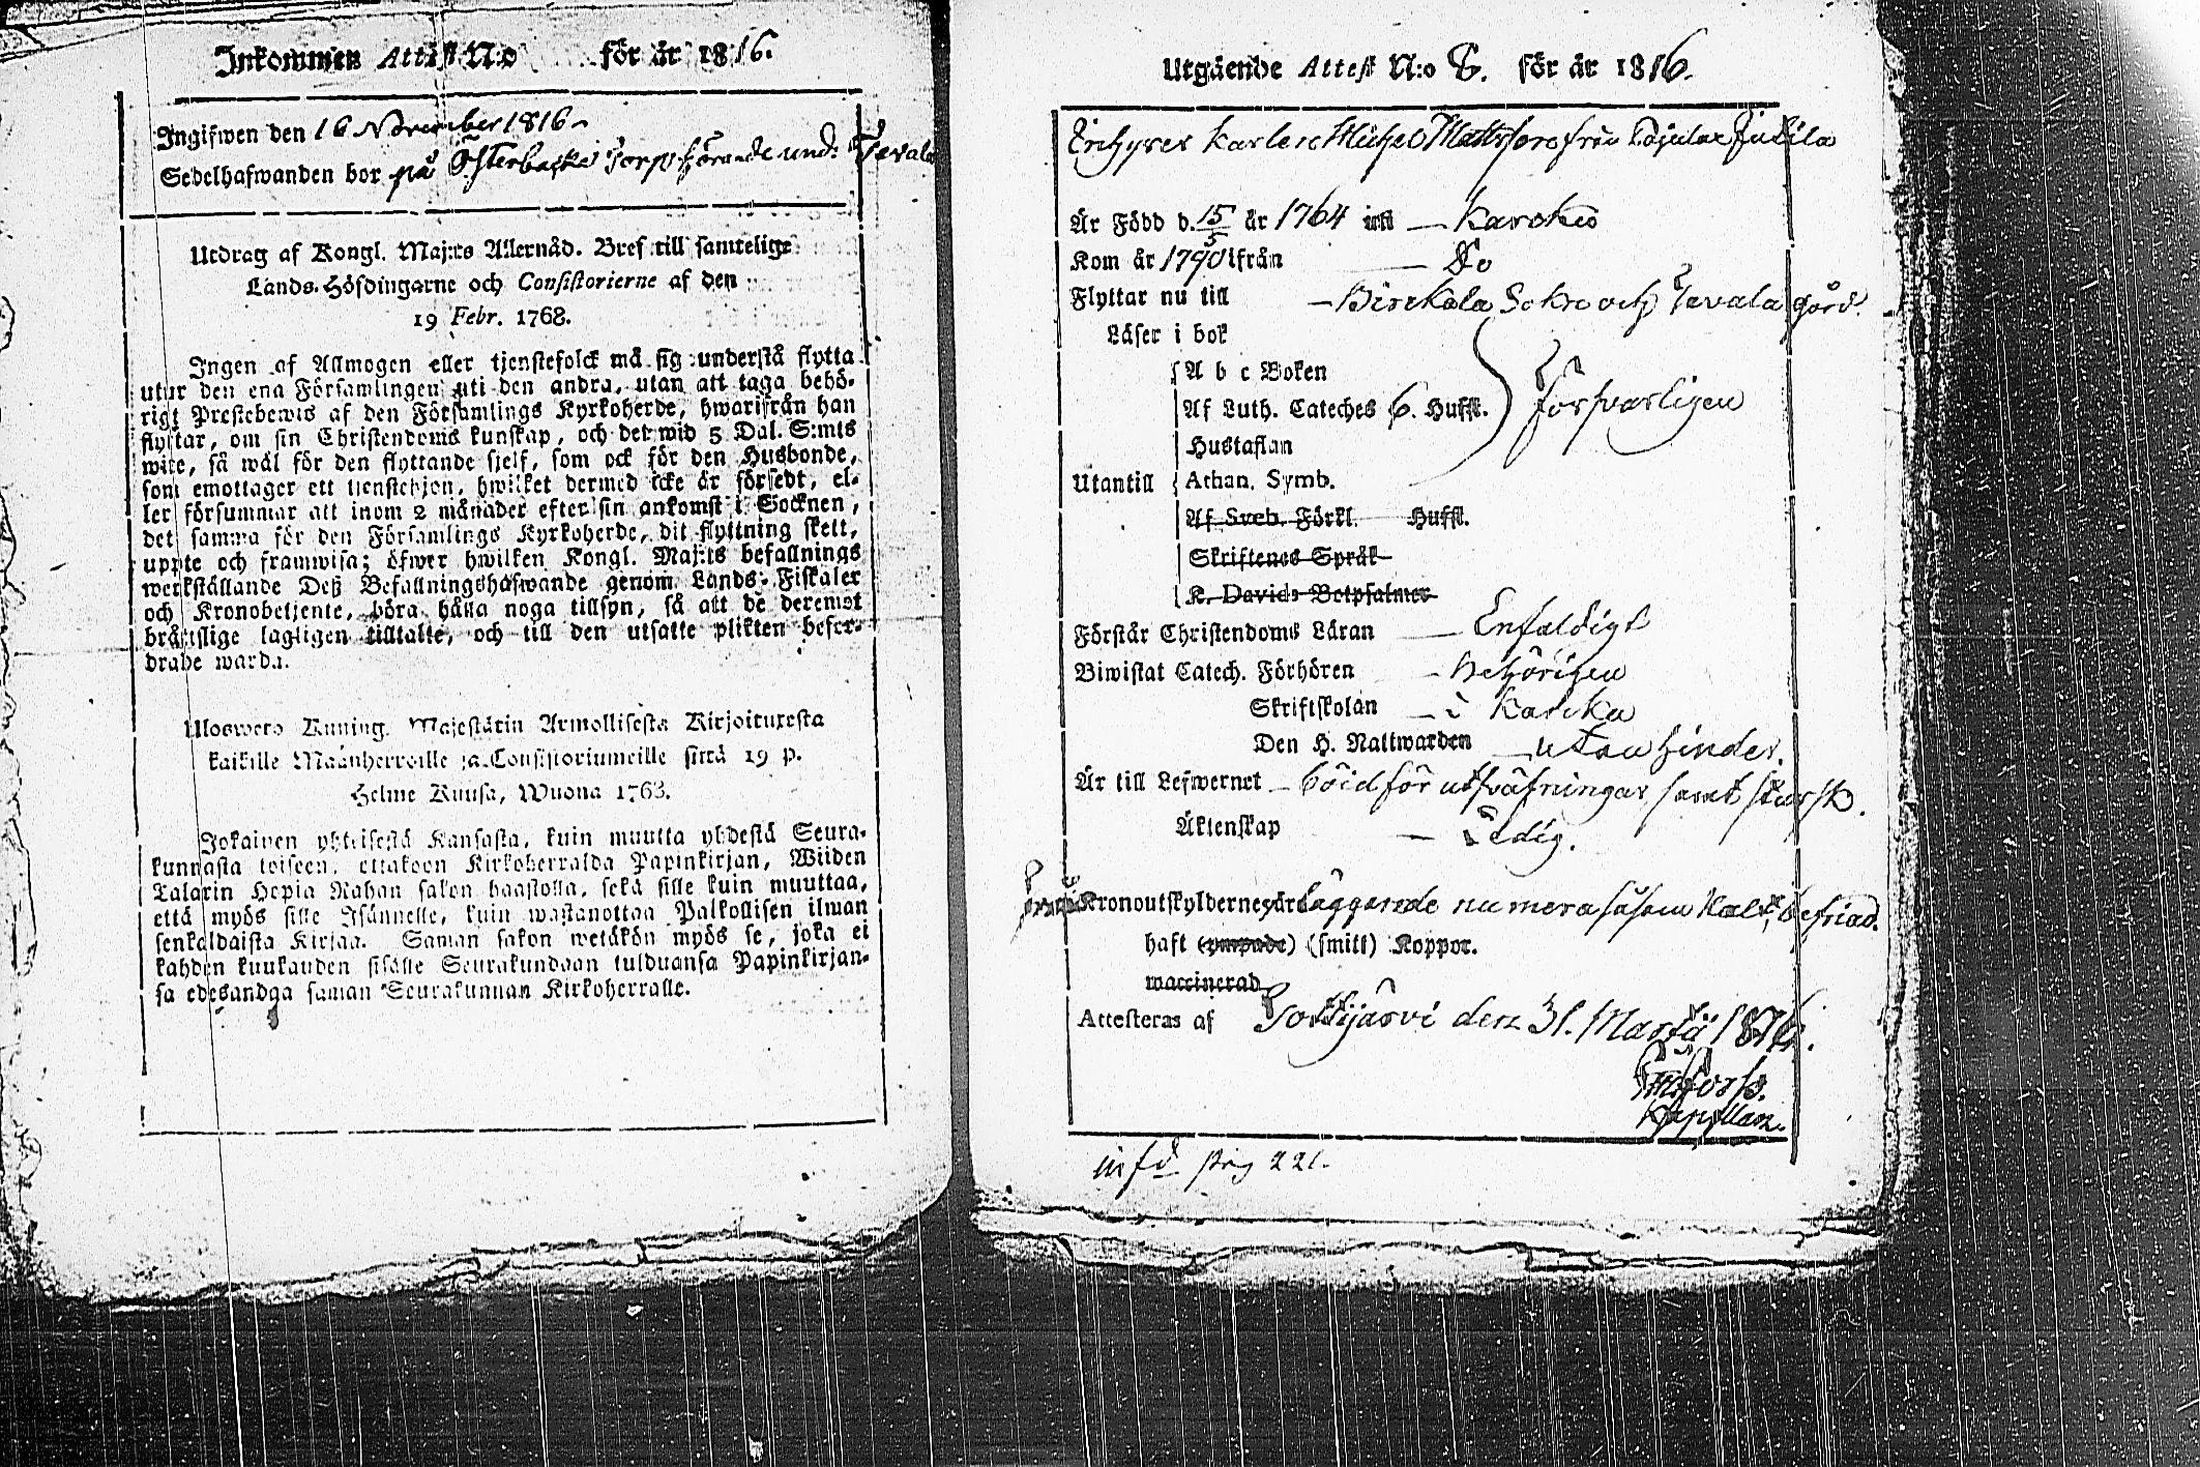 Inkommen Attest N:o för år 1816.
Ingifwen den 16 November 1816
Sedelhafwanden bor på Österbacka Torp hörande und. Tavala
Utdrag af Kongl. Maj:ts Allernåd. Bref till samtelige
Lands-Höfdingarne och Consistorierne af den
19 Febr. 1768.
Ingen af Allmogen eller tjenstefolck må sig understå flytta
utur den ena Församlingen uti den andra, utan att taga behö-
rigt Prestebewis af den Församlings Kyrkoherde, hwarifrån han
flyttar, om sin Christendoms kunskap, och det wid 5 Dal. S:mts
wite, så wäl för den flyttande sjelf, som ock för den Husbonde,
som emottager ett tienstehjon, hwilket dermed icke är försedt, el-
ler försummar att inom 2 månader efter sin ankomst i Socknen,
det samma för den Församlings Kyrkoherde, dit flyttning skett,
uppte och framwisa; öfwer hwilken Kongl. Maj:ts befallnings
werkställande Deß Befallningshafwande genom Lands-Fiskaler
och Kronobetjente, böra hålla noga tillsyn, så att de deremot
bråttslige lagligen tilltalte, och till den utsatte plikten befor-
drade warda.
Uloswero Kuning. Majestätin Armollisesta Kirjoituxesta
kaikille Maanherroille ja Consistoriumeille siitä 19 p.
Helme Kuusa, Wuona 1763.
Jokainen yhteisestä Kansasta, kuin muutta yhdestä Seura-
kunnasta toiseen, ottakoon Kirkoherralda Papinkirjan, Wiiden
Talarin Hopia Rahan sakon haastolla, sekä sille kuin muuttaa,
että myös sille Isännelle, kuin wastanottaa Palkollisen ilman
senkaldaista Kirjaa. Saman sakon wetäkön myös se, joka ei
kahden kuukauden sisälle Seurakundaan tulduansa Papinkirjan-
sa edesandga saman Seurakunnan Kirkoherralle.
Utgående Attest N:o 8. för år 1816.
Karlen Michel Mattsson från
Är Född d. 15/5 år 1764 uti — Karkku
Kom år 1790 ifrån — Do
Flyttar nu till — Birkala Sokn och Tavala gård.
Läser i bok
A b c Boken
Af Luth. Cateches 6. Hufst. Försvarligen
Hustaflan
Utantill Athan. Symb.
Af Sveb. Förkl. Hufst.
Skriftenes Språk
K. Davids Botpsalmer
Förstår Christendoms Läran — Enfaldigt
Biwistat Catech. Förhören — behörigen
Skriftskolan — i Karkku
Den H. Nattwarden — utan hinder.
Är till Lefwernet — för utsväfningar samt
Äktenskap — Ledig.
Kronoutskylderne numera såsom befriad.
haft (ympade) (smitt) Koppor.
waccinerad
Attesteras af Tottijärvi den 31. Martii 1816.
Kapellan.
inf:d pag 221.